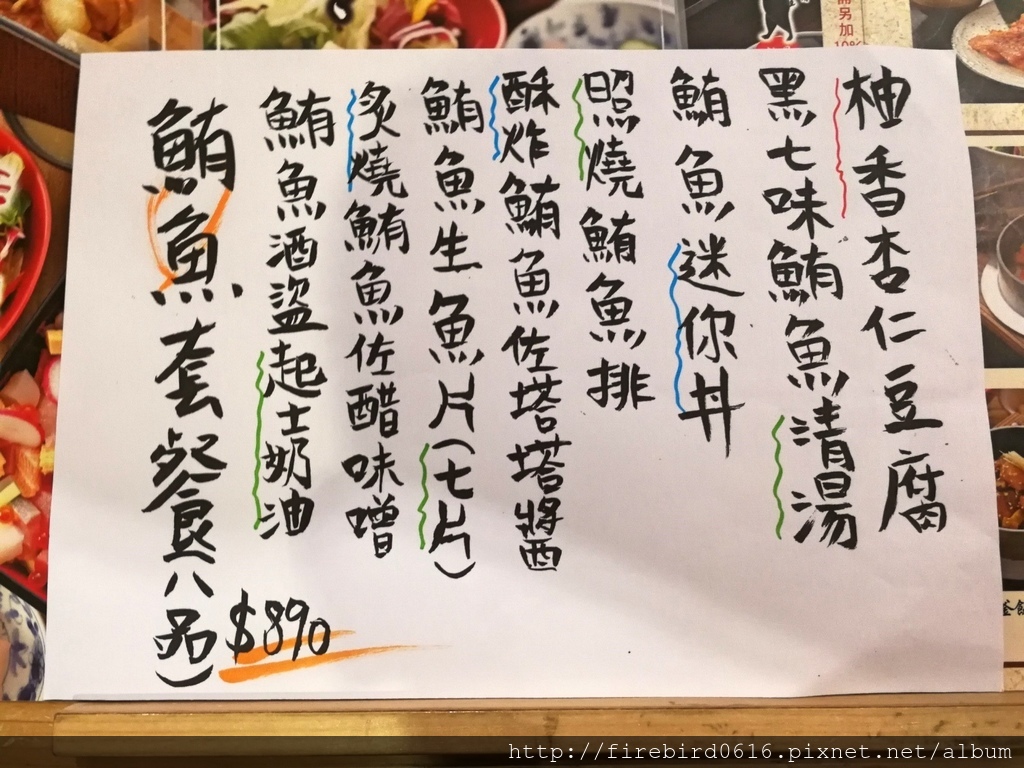 鮪魚套餐八品)
$890
鮪魚酒盜起士奶油
炙燒鮪魚佐醋味噌
鮪魚生魚片(七片)
酥炸鮪魚佐塔塔醬
照燒鮪魚排
鮪魚迷你丼
黑七味鮪魚清湯
柚香杏仁豆腐
需另加
10%
http://firebird0616.pixnet.net/album